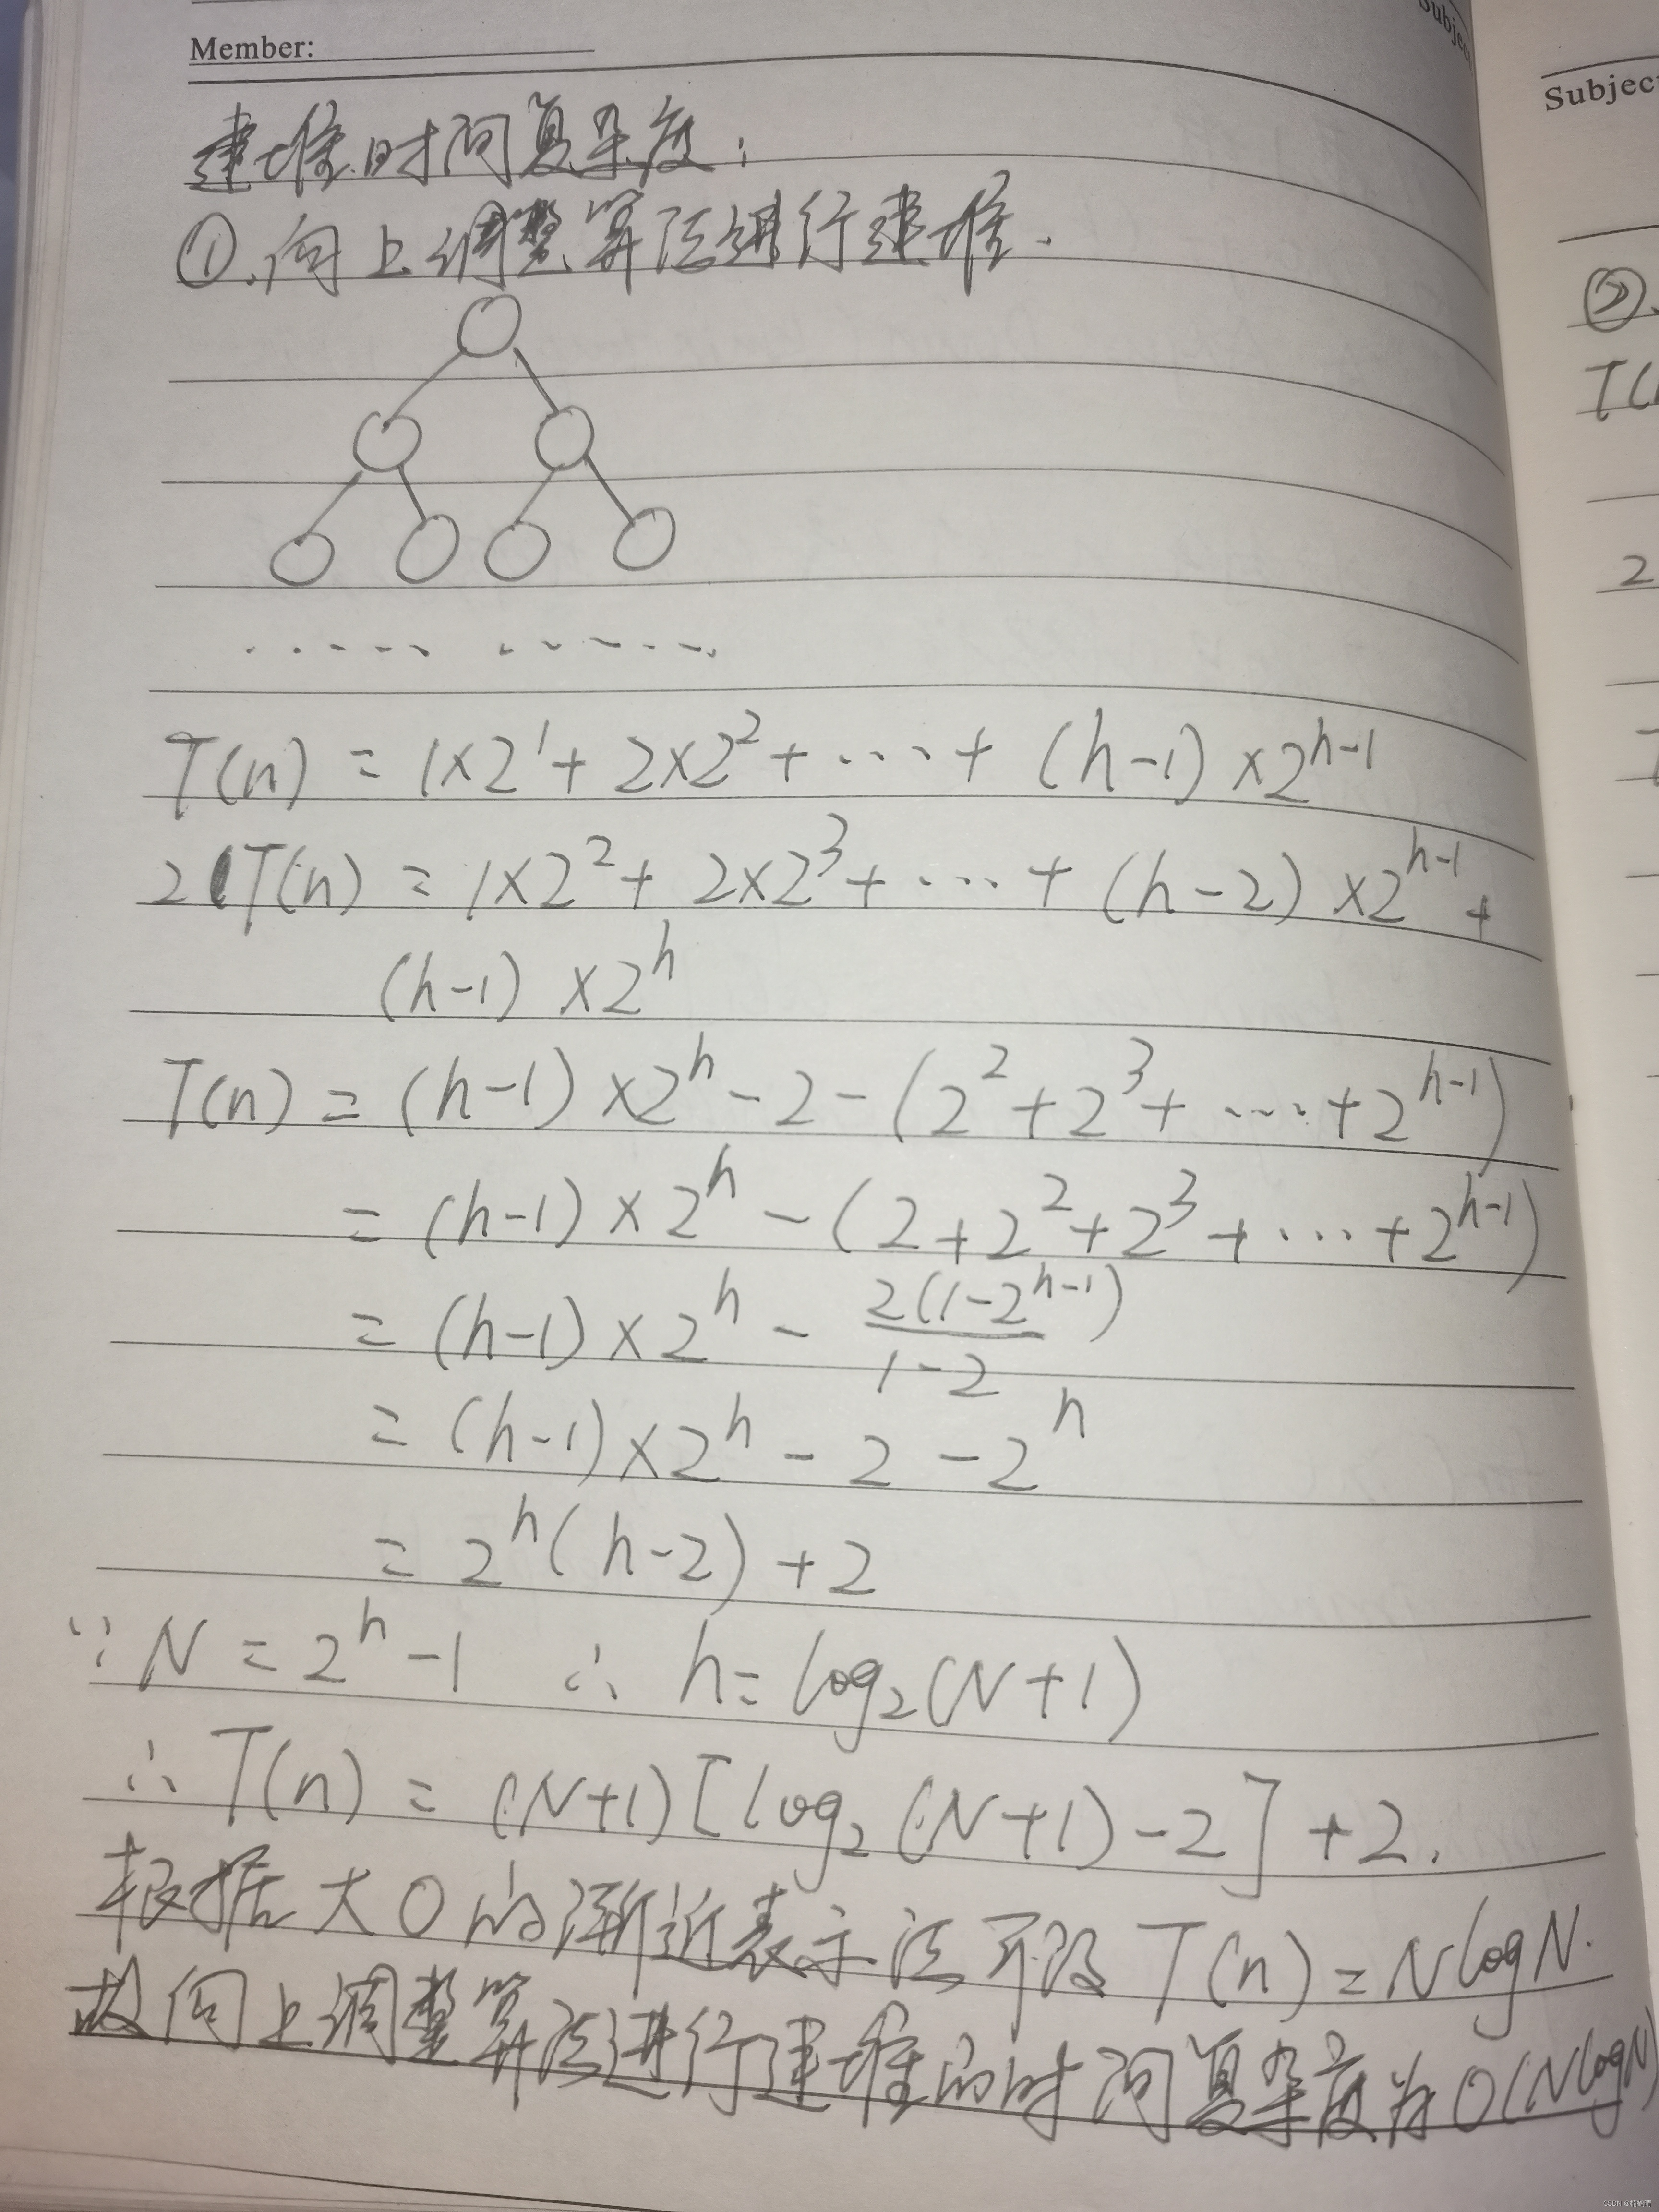 Member:
Subjec
Subject
建堆时间复杂度：
①.向上调整算法进行建堆.
T(n) = 1×2^1 + 2×2^2 + ... + (h-1)×2^{h-1}
2T(n) = 1×2^2 + 2×2^3 + ... + (h-2)×2^{h-1} +
(h-1)×2^h
T(n) = (h-1)×2^h - 2 - (2^2 + 2^3 + ... + 2^{h-1})
= (h-1)×2^h - (2 + 2^2 + 2^3 + ... + 2^{h-1})
= (h-1)×2^h - \frac{2(1-2^{h-1})}{1-2}
= (h-1)×2^h - 2 - 2^h
= 2^h(h-2) + 2
∵ N = 2^h - 1 ∴ h = log₂(N+1)
∴ T(n) = (N+1)[log₂(N+1) - 2] + 2.
根据大O的渐近表示法可得 T(n) = NlogN.
故向上调整算法进行建堆的时间复杂度为O(NlogN)
②.
T(
2
T